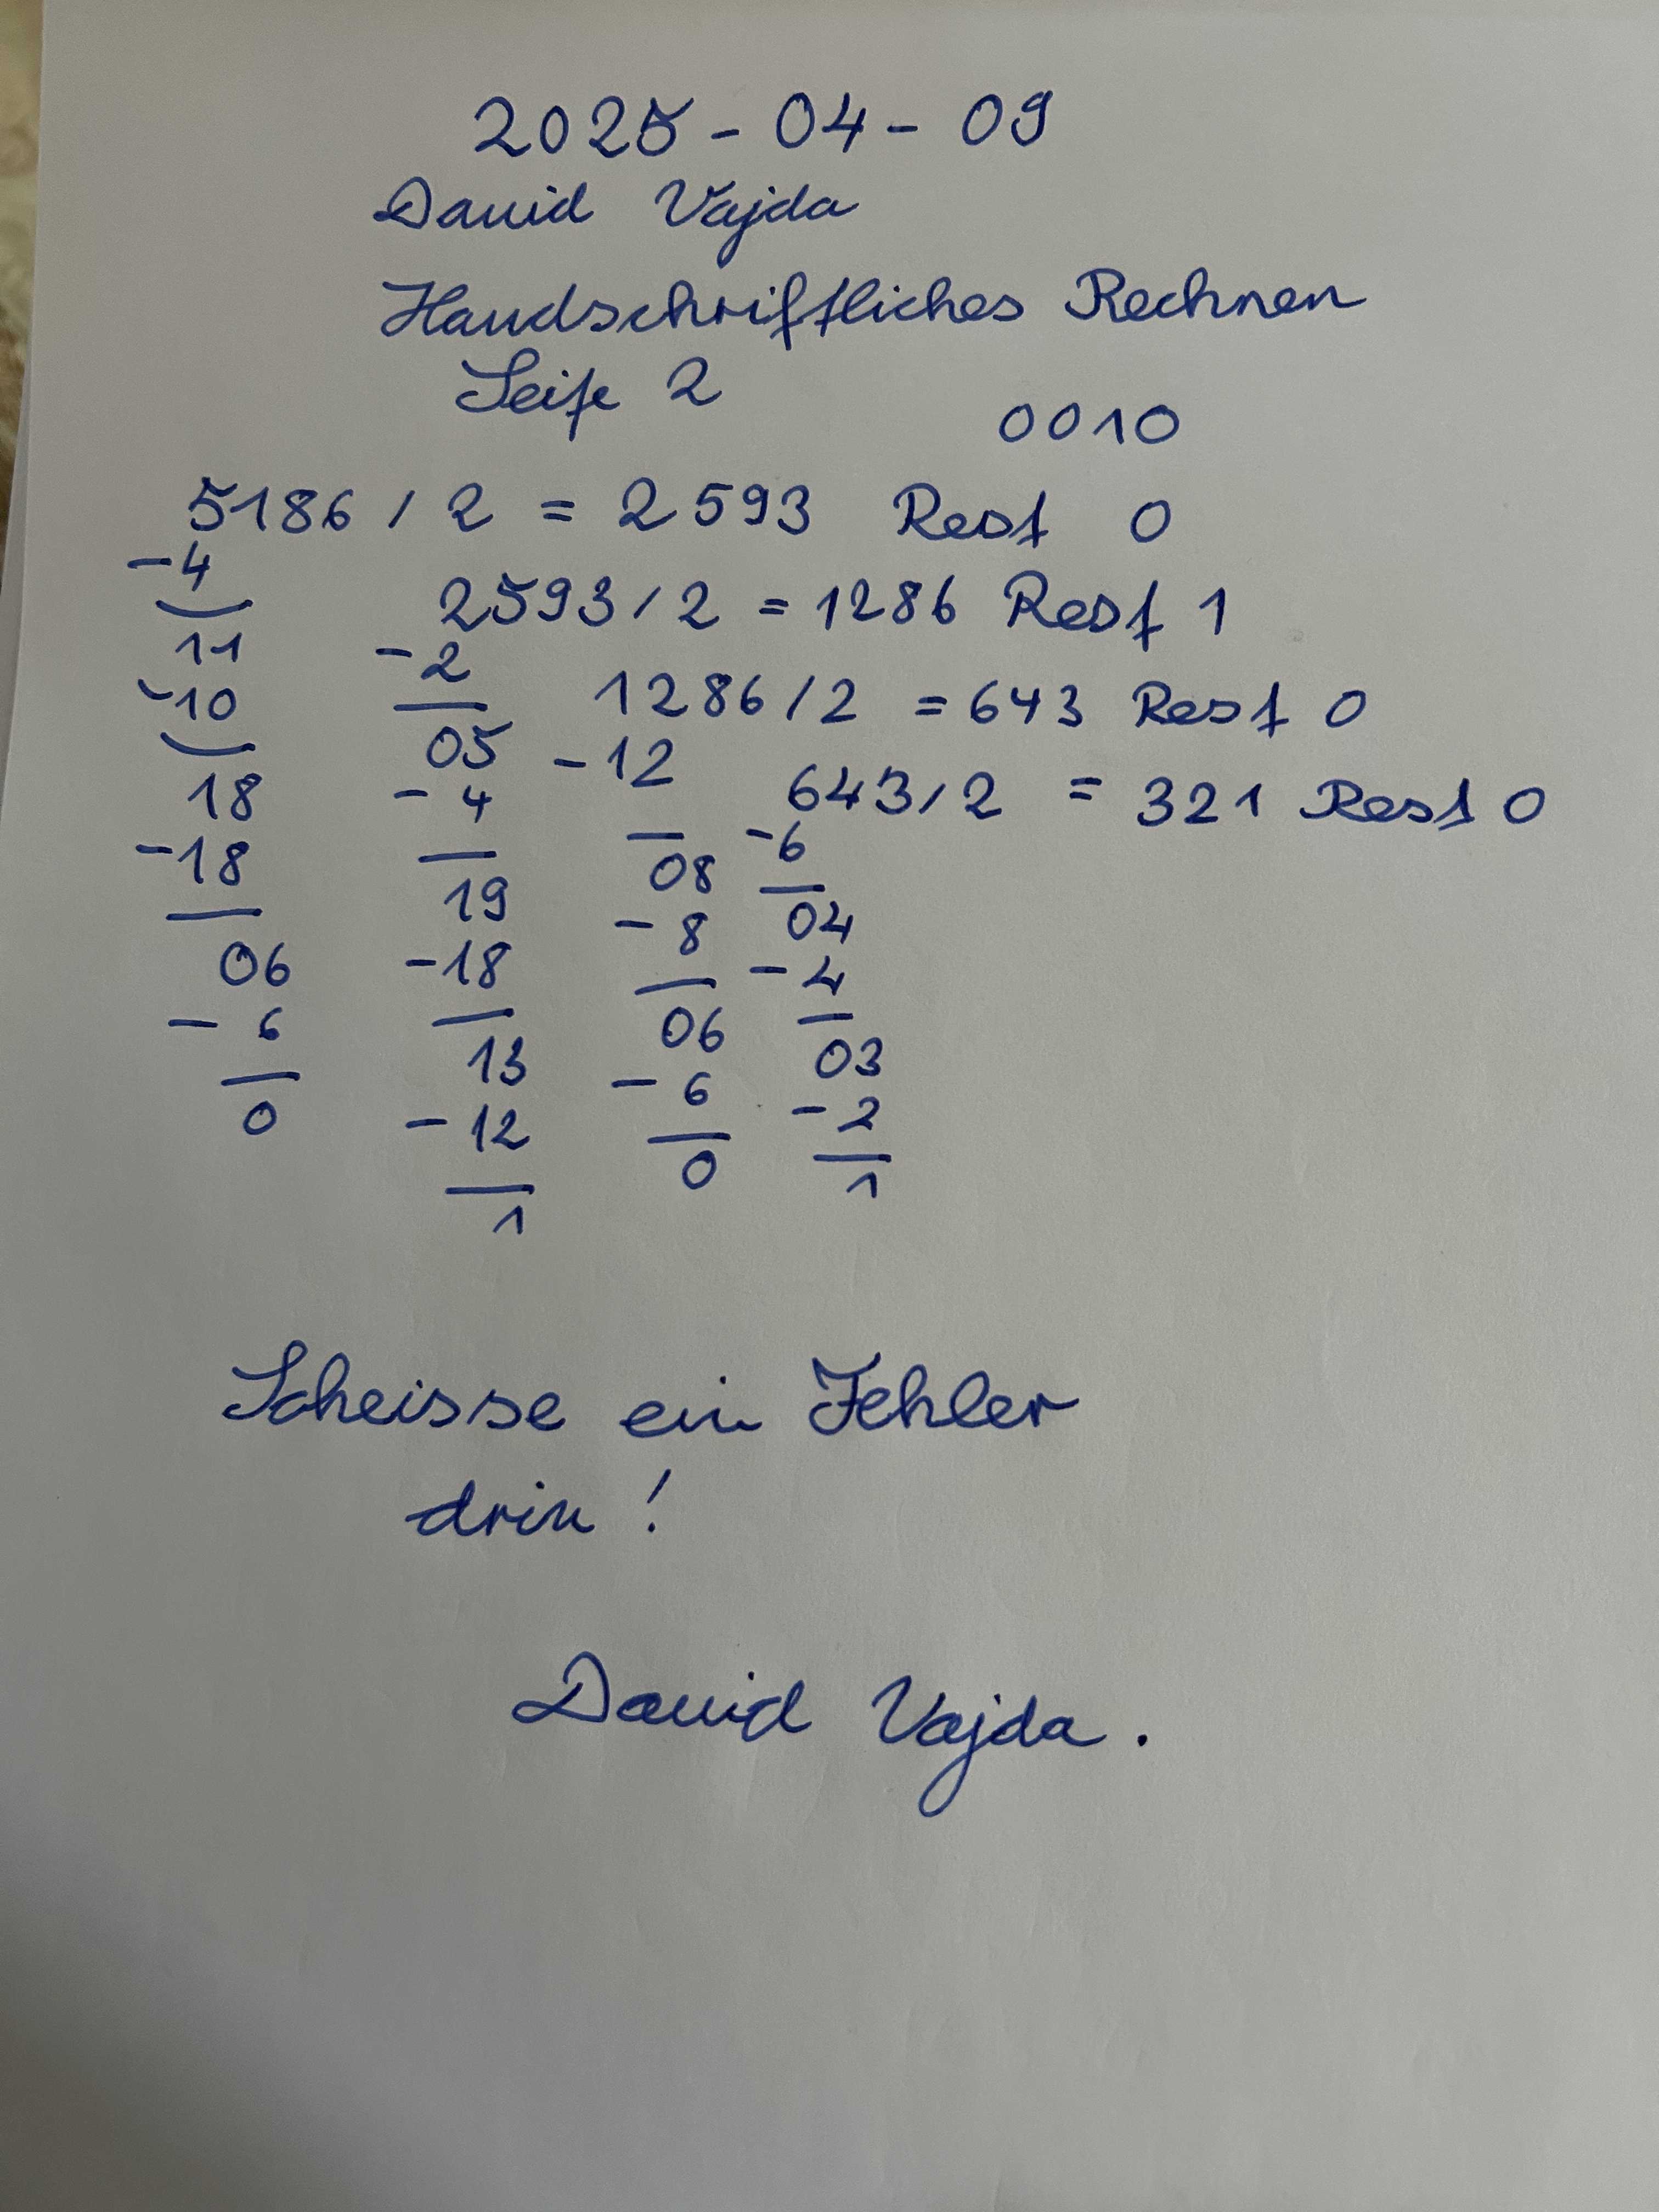 2025 - 04 - 09
David Vajda
Handschriftliches Rechnen
Seite 2
0010
5186 / 2 = 2593 Rest 0
-4
2593 / 2 = 1286 Rest 1
11
-2
-10
1286 / 2 = 643 Rest 0
05
-12
18
-4
643 / 2 = 321 Rest 0
-18
08
-6
19
-8
04
06
-18
-4
-6
13
06
03
0
-12
-6
-2
1
0
1
Scheisse ein Fehler
drin !
David Vajda.